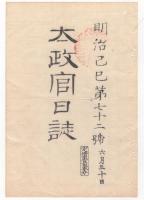 明治己巳第七十二號
六月三十日
太政官日誌